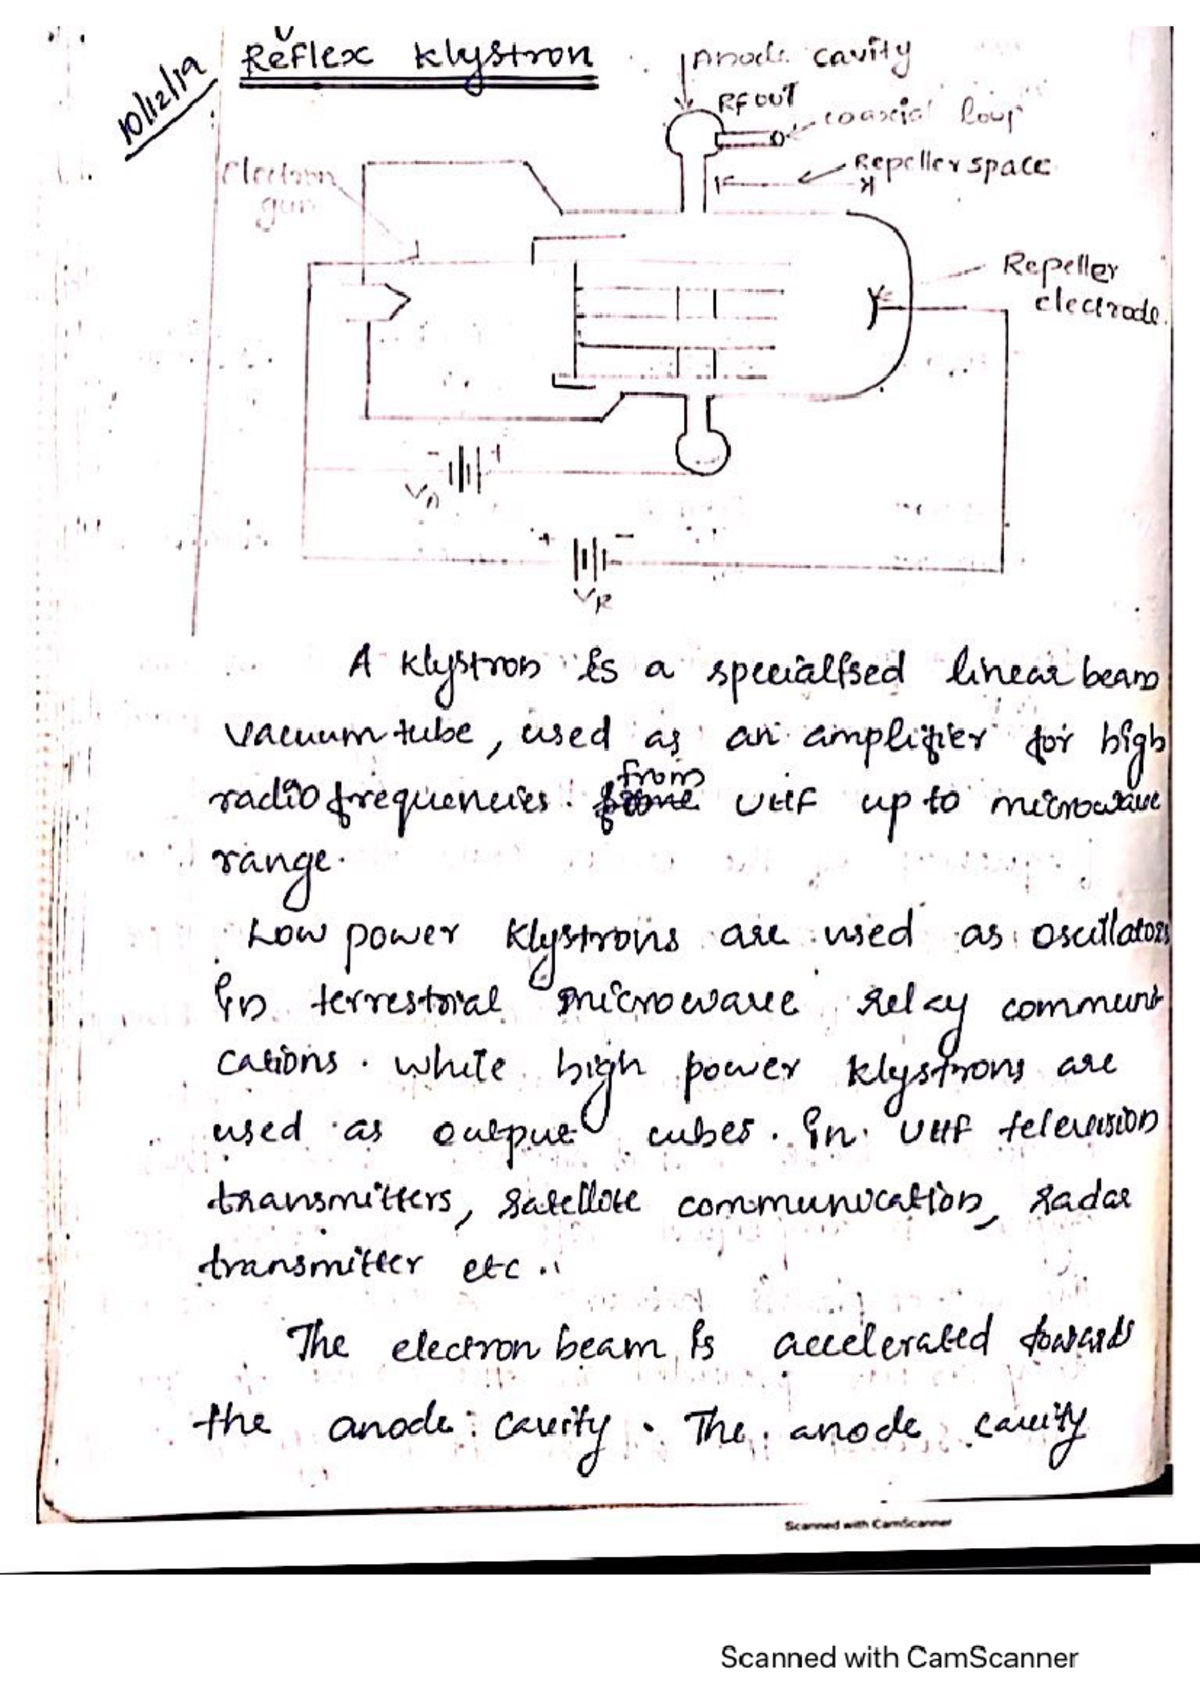 10/12/19
Reflex Klystron
Anode cavity
RF out
coaxial loop
Repeller space
Electron
gun
Repeller
electrode.
- +
VA
+ -
VR
A Klystron is a specialised linear beam
vacuum tube, used as an amplifier for high
radio frequencies. from UHF up to microwave
range.
Low power Klystrons are used as oscillators
in terrestrial microwave relay communi
cations. while high power klystrons are
used as output tubes. in UHF television
transmitters, satellite communication, radar
transmitter etc..
The electron beam is accelerated towards
the anode cavity. The anode cavity
Scanned with CamScanner
Scanned with CamScanner